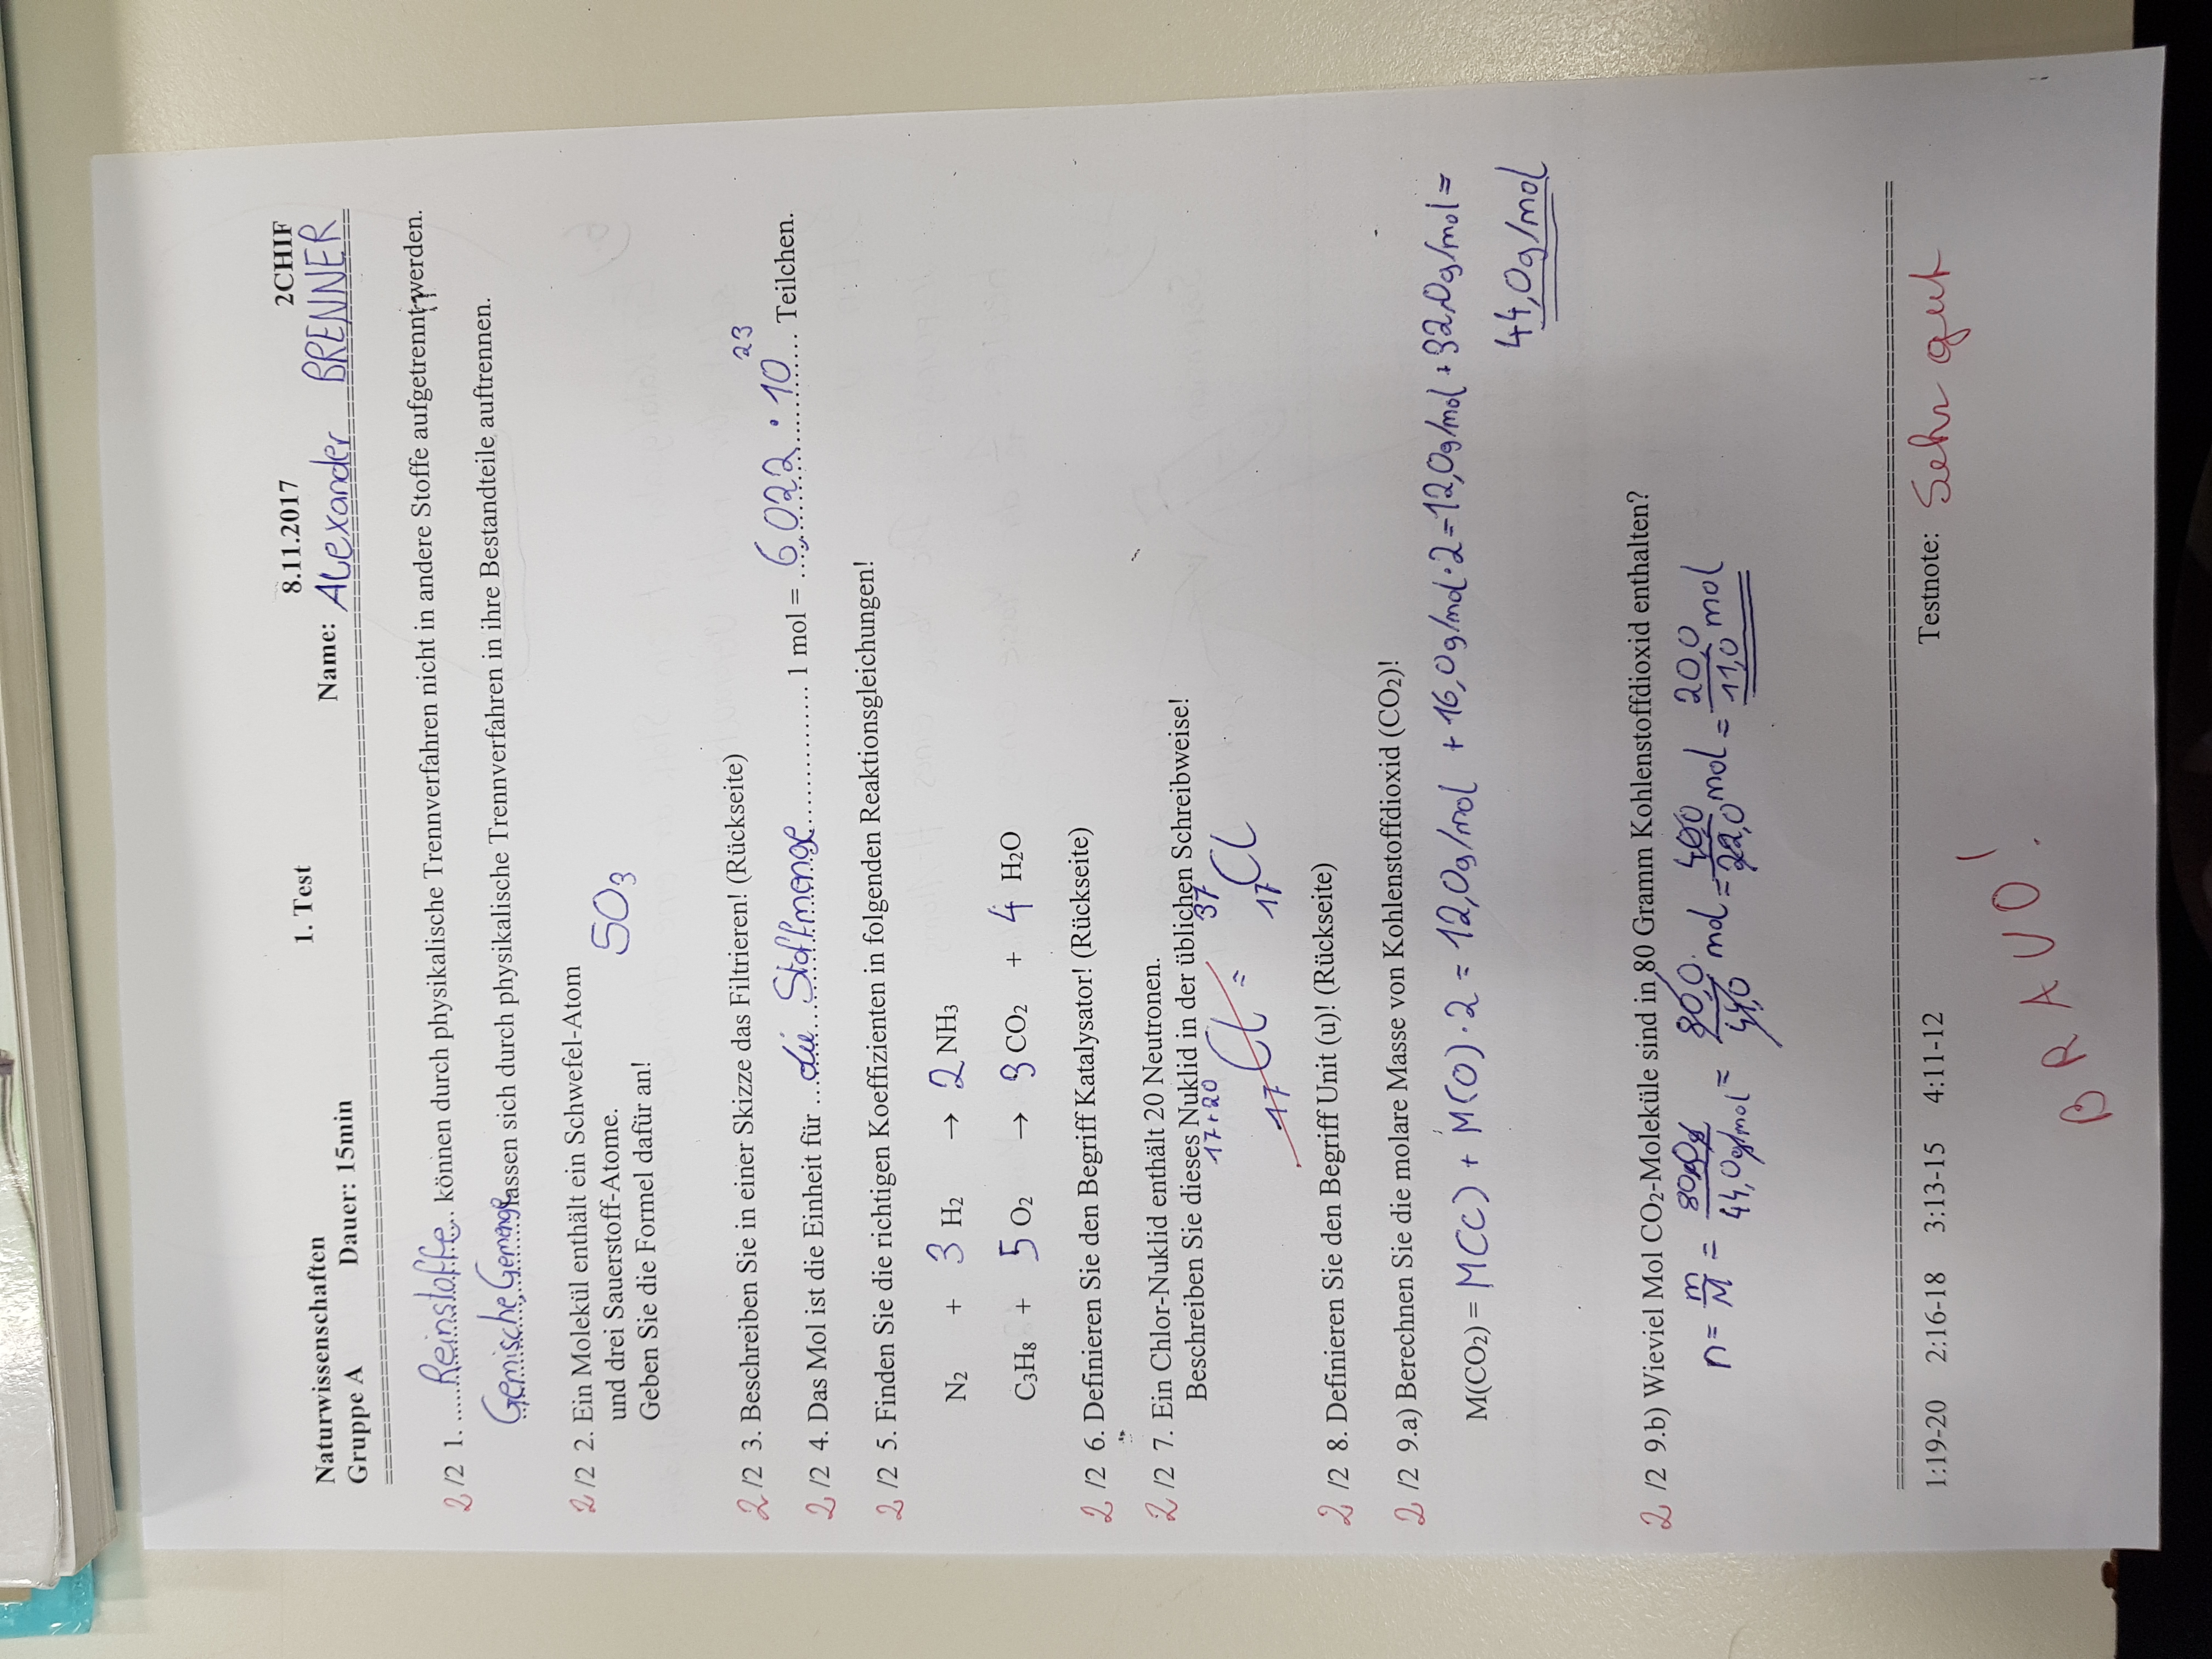 Naturwissenschaften 1. Test 8.11.2017 2CHIF
Gruppe A Dauer: 15min Name: Alexander BRENNER
2/2 1. Reinstoffe können durch physikalische Trennverfahren nicht in andere Stoffe aufgetrennt werden.
Gemische, Gemenge lassen sich durch physikalische Trennverfahren in ihre Bestandteile auftrennen.
2/2 2. Ein Molekül enthält ein Schwefel-Atom
und drei Sauerstoff-Atome. SO₃
Geben Sie die Formel dafür an!
2/2 3. Beschreiben Sie in einer Skizze das Filtrieren! (Rückseite)
2/2 4. Das Mol ist die Einheit für die Stoffmenge 1 mol = 6,022 · 10²³ Teilchen.
2/2 5. Finden Sie die richtigen Koeffizienten in folgenden Reaktionsgleichungen!
N₂ + 3 H₂ → 2 NH₃
C₃H₈ + 5 O₂ → 3 CO₂ + 4 H₂O
2/2 6. Definieren Sie den Begriff Katalysator! (Rückseite)
2/2 7. Ein Chlor-Nuklid enthält 20 Neutronen.
Beschreiben Sie dieses Nuklid in der üblichen Schreibweise!
17+20 37
17 Cl = 17 Cl
2/2 8. Definieren Sie den Begriff Unit (u)! (Rückseite)
2/2 9.a) Berechnen Sie die molare Masse von Kohlenstoffdioxid (CO₂)!
M(CO₂) = M(C) + M(O) · 2 = 12,0g/mol + 16,0g/mol · 2 = 12,0g/mol + 32,0g/mol =
44,0g/mol
2/2 9.b) Wieviel Mol CO₂-Moleküle sind in 80 Gramm Kohlenstoffdioxid enthalten?
n = m/M = 80,0g/44,0g/mol = 80,0/44,0 mol = 40,0/22,0 mol = 20,0/11,0 mol
1:19-20 2:16-18 3:13-15 4:11-12 Testnote: Sehr gut
BRAVO!